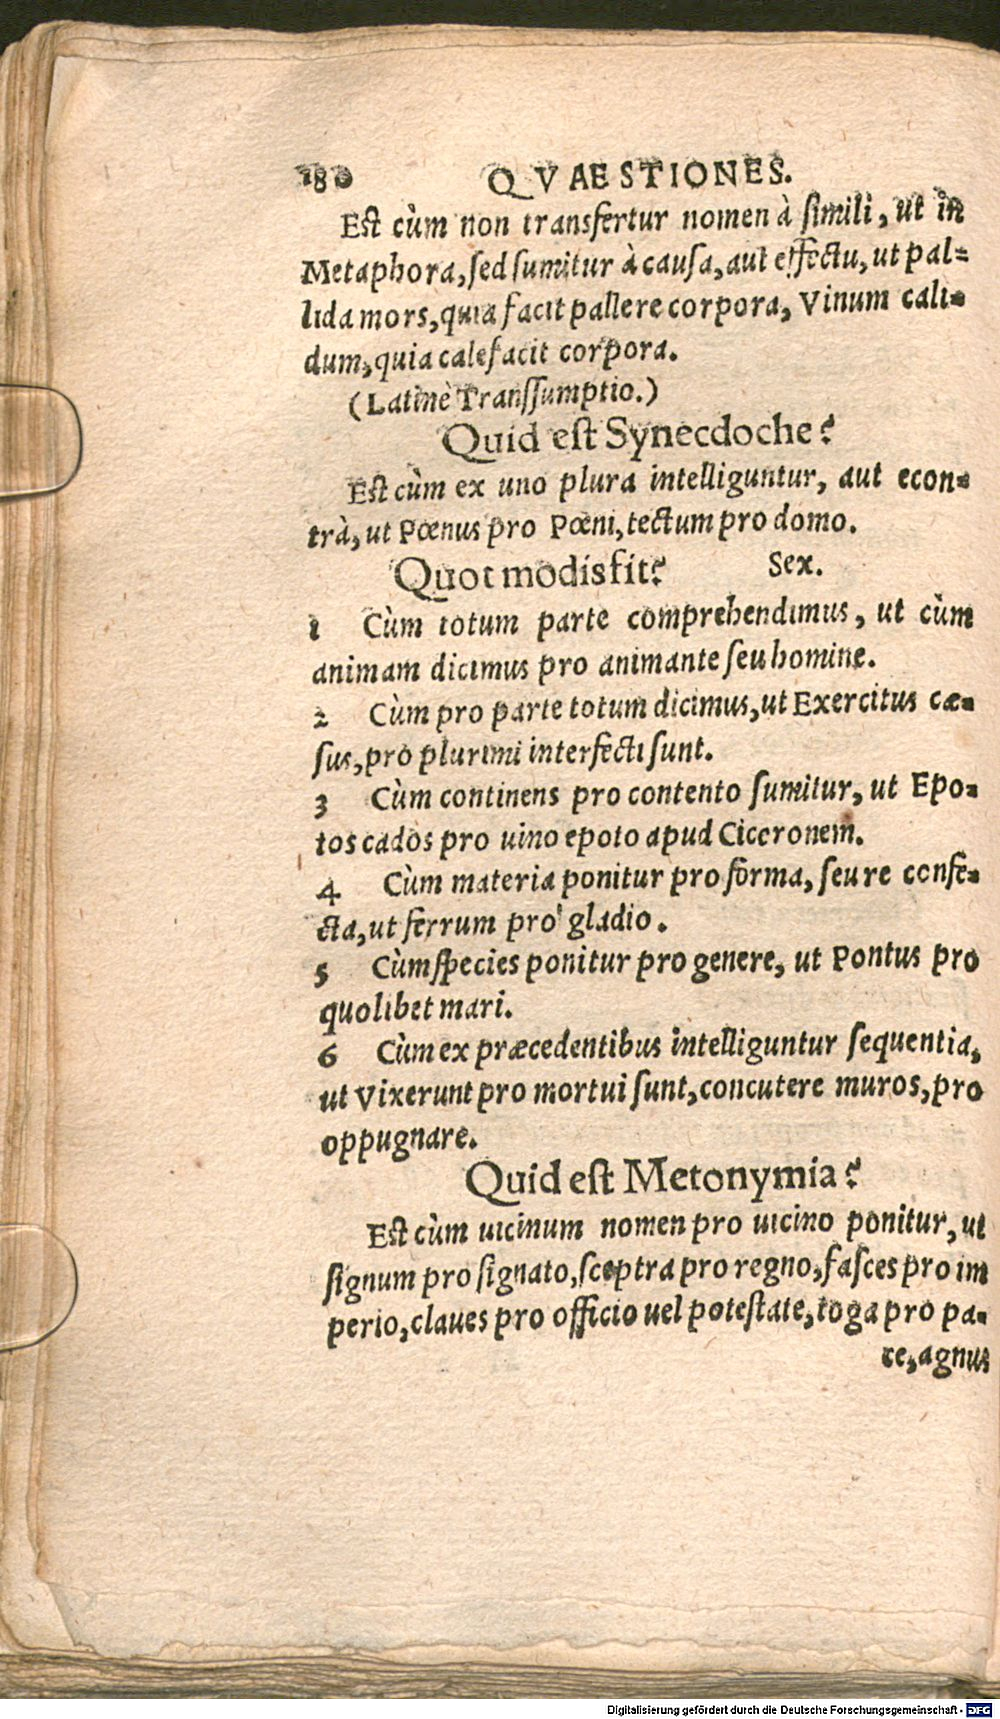 180 QVAESTIONES.
Est cùm non transfertur nomen à simili, ut in
Metaphora, sed sumitur à causa, aut effectu, ut pal=
lida mors, quia facit pallere corpora, Vinum cali=
dum, quia calefacit corpora.
(Latinè Transsumptio.)
Quid est Synecdoche?
Est cùm ex uno plura intelliguntur, aut econ=
trà, ut Pœnus pro Pœni, tectum pro domo.
Quot modis fit? Sex.
1 Cùm totum parte comprehendimus, ut cùm
animam dicimus pro animante seu homine.
2 Cùm pro parte totum dicimus, ut Exercitus cæ=
sus, pro plurimi interfecti sunt.
3 Cùm continens pro contento sumitur, ut Epo=
tos cados pro uino epoto apud Ciceronem.
4 Cùm materia ponitur pro forma, seu re confe=
cta, ut ferrum pro gladio.
5 Cùm species ponitur pro genere, ut Pontus pro
quolibet mari.
6 Cùm ex præcedentibus intelliguntur sequentia,
ut Vixerunt pro mortui sunt, concutere muros, pro
oppugnare.
Quid est Metonymia?
Est cùm uicinum nomen pro uicino ponitur, ut
signum pro signato, sceptra pro regno, fasces pro im
perio, claues pro officio uel potestate, toga pro pa=
ce, agnus
Digitalisierung gefördert durch die Deutsche Forschungsgemeinschaft - DFG